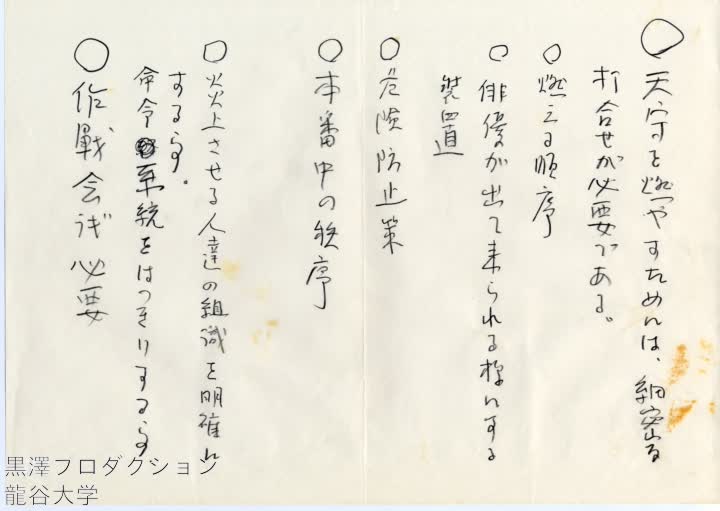 ○天守を燃やすためには、細密な
打合せが必要である。
○燃える順序
○俳優が出て来られる様にする
装置
○危険防止策
○本番中の秩序
○炎上させる人達の組織を明確に
する事。
命令系統をはっきりする事
○作戦会議必要
黒澤プロダクション
龍谷大学